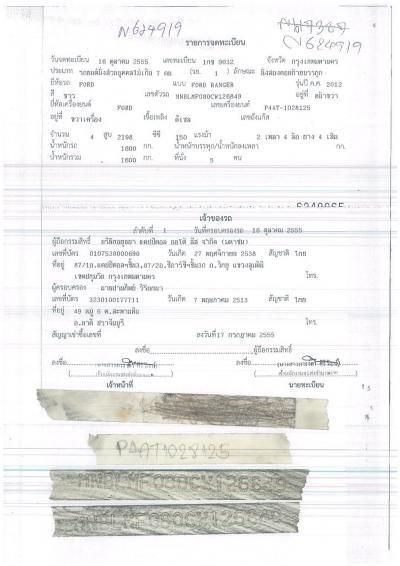 N624919
N624919
รายการจดทะเบียน
วันจดทะเบียน 16 ตุลาคม 2555 เลขทะเบียน 1กช 9032 จังหวัด กรุงเทพมหานคร
ประเภท รถยนต์นั่งส่วนบุคคลไม่เกิน 7 คน (รย. 1 ) ลักษณะ นั่งสองตอนท้ายบรรทุก
ยี่ห้อรถ FORD แบบ FORD RANGER รุ่นปี ค.ศ. 2012
สี ขาว เลขตัวรถ MNBLMF080CW126849 อยู่ที่
ยี่ห้อเครื่องยนต์ FORD เลขเครื่องยนต์ P4AT-1028125
อยู่ที่ ขวาเครื่อง เชื้อเพลิง ดีเซล เลขถังแก๊ส
จำนวน 4 สูบ 2198 ซีซี 150 แรงม้า 2 เพลา 4 ล้อ ยาง 4 เส้น
น้ำหนักรถ 1600 กก. น้ำหนักบรรทุก/น้ำหนักลงเพลา กก.
น้ำหนักรวม 1600 กก. ที่นั่ง 5 คน
เจ้าของรถ
ลำดับที่ 1 วันที่ครอบครองรถ 16 ตุลาคม 2555
ผู้ถือกรรมสิทธิ์ บริษัทอยุธยา แคปปิตอล ออโต้ ลีส จำกัด (มหาชน)
เลขที่บัตร 0107538000690 วันเกิด 27 พฤศจิกายน 2538 สัญชาติ ไทย
ที่อยู่ ถ.วิทยุ แขวงลุมพินี
เขตปทุมวัน กรุงเทพมหานคร โทร.
ผู้ครอบครอง
เลขที่บัตร 3230100177711 วันเกิด 7 พฤษภาคม 2513 สัญชาติ ไทย
ที่อยู่ 49 หมู่ 6 ต.สะพานหิน
โทร.
สัญญาเช่าซื้อเลขที่ ลงวันที่ 17 กรกฎาคม 2555
ลงชื่อ ผู้ถือกรรมสิทธิ์
ลงชื่อ ลงชื่อ
เจ้าหน้าที่ นายทะเบียน
P4AT1028125
MNBLMF080CW126849
MNBLMF080CW126849